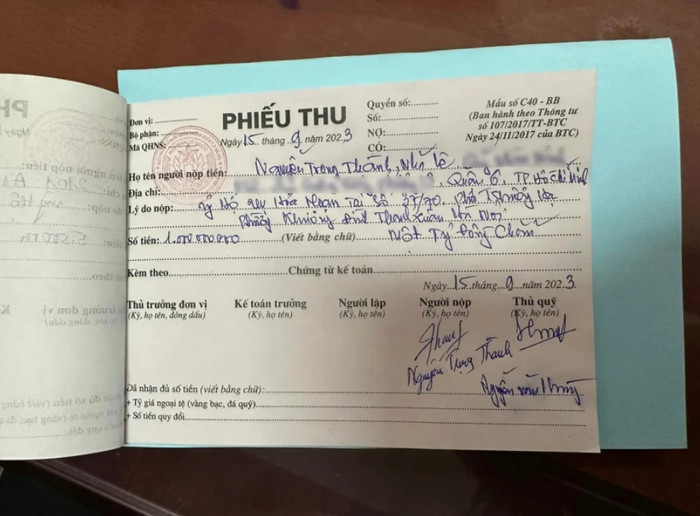 Đơn vị:
Bộ phận:
Mã QHNS:
PHIẾU THU
Ngày 15 tháng 9 năm 2023
Quyển số:
Số:
NỢ:
CÓ:
Mẫu số C40 - BB
(Ban hành theo Thông tư
số 107/2017/TT-BTC
Ngày 24/11/2017 của BTC)
Họ tên người nộp tiền: Nguyễn Trọng Thành,
Địa chỉ: Quận 6, TP Hồ Chí Minh
Lý do nộp: Ủng Hộ Hỏa Hoạn Tại Số 37/70, phố Khương Hạ
phường Khương Đình Thanh Xuân Hà Nội
Số tiền: 1.000.000.000 (Viết bằng chữ) Một Tỷ Đồng Chẵn
Kèm theo Chứng từ kế toán
Ngày 15 tháng 9 năm 2023
Thủ trưởng đơn vị Kế toán trưởng Người lập Người nộp Thủ quỹ
(Ký, họ tên, đóng dấu) (Ký, họ tên) (Ký, họ tên) (Ký, họ tên) (Ký, họ tên)
Nguyễn Trọng Thành
Đã nhận đủ số tiền (viết bằng chữ):
+ Tỷ giá ngoại tệ (vàng bạc, đá quý)
+ Số tiền quy đổi